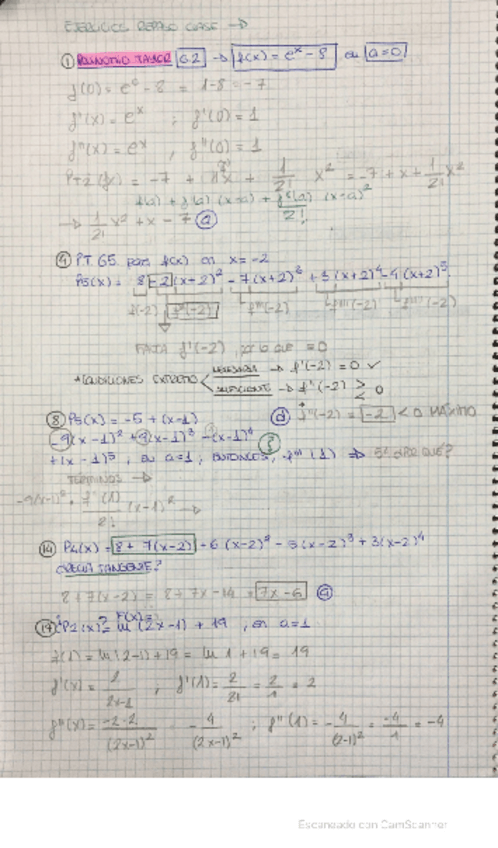 EJERCICIOS REPASO CLASE →
① POLINOMIO TAYLOR G2 → f(x) = e^x - 8 en a=0
f(0) = e^0 - 8 = 1-8 = -7
f'(x) = e^x ; f'(0) = 1
f''(x) = e^x , f''(0) = 1
PT2 f(x) = -7 + 1x + 1/2! x² = -7 + x + 1/2! x²
f(a) + f'(a) (x-a) + f''(a)/2! (x-a)²
→ 1/2! x² + x - 7 ⓐ
④ PT G5 para f(x) en x=-2
P5(x) = 8 - 2(x+2)² - 7(x+2)³ + 3(x+2)⁴ - 9(x+2)⁵
f(-2) f''(-2) f'''(-2) f''''(-2) f'''''(-2)
FALTA f'(-2), por lo que = 0
*CONDICIONES EXTREMO NECESARIA → f'(-2) = 0 ✓
SUFICIENTE → f''(-2) ≷ 0
ⓓ f''(-2) = -2 < 0 MÁXIMO
⑧ P5(x) = -5 + (x-1)
-9(x-1)² + 9(x-1)³ - (x-1)⁴
+(x-1)⁵, en a=1, ENTONCES, f'''(1) ⇒ 54 ¿POR QUÉ?
TÉRMINOS →
-9(x-1)² = f''(1)/2! (x-1)² →
⑭ P4(x) = 8 + 7(x-2) - 6(x-2)² - 5(x-2)³ + 3(x-2)⁴
¿RECTA TANGENTE?
8 + 7(x-2) = 8 + 7x - 14 = 7x - 6 ⓐ
⑰ ¿P2(x)? f(x) = ln(2x-1) + 19, en a=1
f(1) = ln(2-1) + 19 = ln 1 + 19 = 19
f'(x) = 2/2x-1 ; f'(1) = 2/2-1 = 2/1 = 2
f''(x) = -2·2/(2x-1)² = -4/(2x-1)² ; f''(1) = -4/(2-1)² = -4/1 = -4
Escaneado con CamScanner